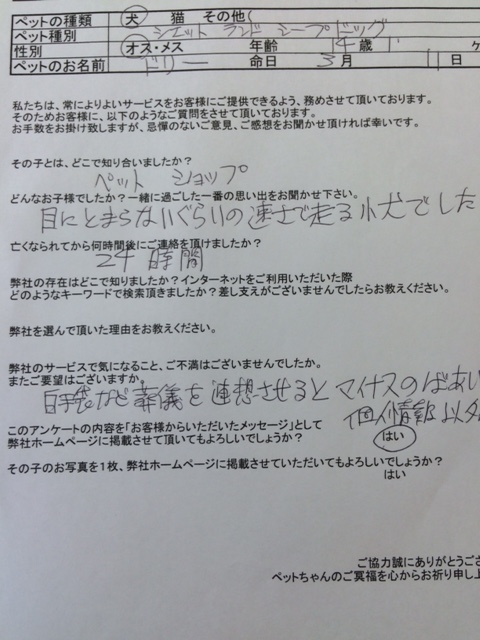 ペットの種類 犬 猫 その他(
ペット種別 シェットランドシープドッグ
性別 オス・メス 年齢 4 歳 ヶ
ペットのお名前 ドリー 命日 3 月 日
私たちは、常によりよいサービスをお客様にご提供できるよう、務めさせて頂いております。
そのためお客様に、以下のようなご質問をさせて頂いております。
お手数をお掛け致しますが、忌憚のないご意見、ご感想をお聞かせ頂ければ幸いです。
その子とは、どこで知り合いましたか?
ペットショップ
どんなお子様でしたか?一緒に過ごした一番の思い出をお聞かせ下さい。
目にとまらないぐらいの速さで走る小犬でした
亡くなられてから何時間後にご連絡を頂けましたか?
24時間
弊社の存在はどこで知りましたか?インターネットをご利用いただいた際
どのようなキーワードで検索頂きましたか?差し支えがございませんでしたらお教えください。
弊社を選んで頂いた理由をお教えください。
弊社のサービスで気になること、ご不満はございませんでしたか。
またご要望はございますか。
白手袋など葬儀を連想させるとマイナスのばあい
個人情報以外
このアンケートの内容を「お客様からいただいたメッセージ」として
弊社ホームページに掲載させて頂いてもよろしいでしょうか? はい
その子のお写真を1枚、弊社ホームページに掲載させていただいてもよろしいでしょうか?
はい
ご協力誠にありがとうござ
ペットちゃんのご冥福を心からお祈り申し上